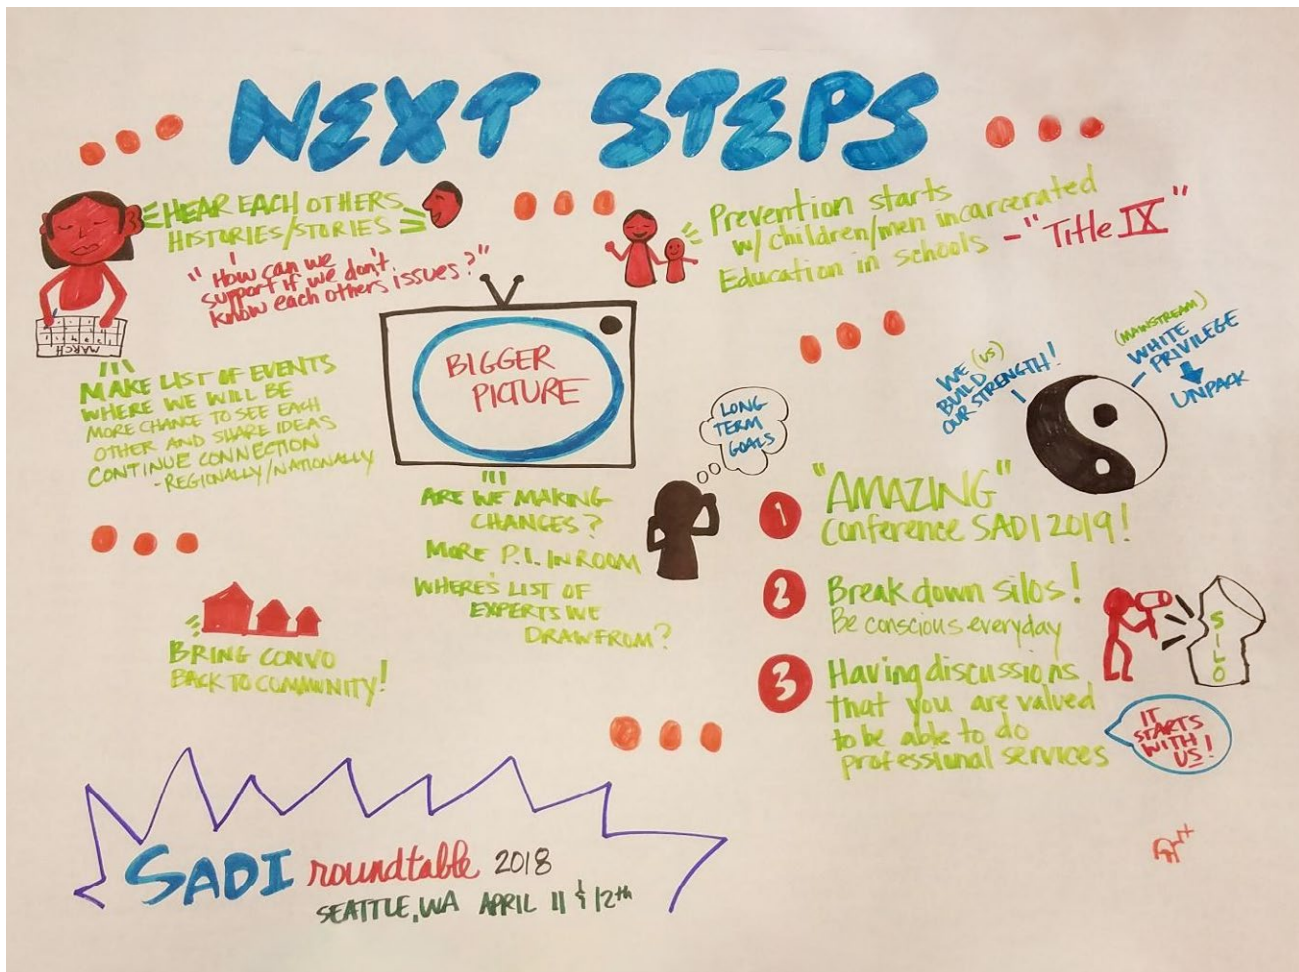 NEXT STEPS
HEAR EACH OTHERS
HISTORIES/STORIES
"How can we
support if we don't
know each others issues?"
MARCH
MAKE LIST OF EVENTS
WHERE WE WILL BE
MORE CHANCE TO SEE EACH
OTHER AND SHARE IDEAS
CONTINUE CONNECTION
- REGIONALLY/NATIONALLY
BRING CONVO
BACK TO COMMUNITY!
BIGGER
PICTURE
ARE WE MAKING
CHANGES?
MORE P.I. IN ROOM
WHERE'S LIST OF
EXPERTS WE
DRAW FROM?
LONG
TERM
GOALS
Prevention starts
w/ children/men incarcerated
Education in schools - "Title IX"
WE (US)
BUILD
OUR STRENGTH!
(MAINSTREAM)
WHITE
PRIVILEGE
UNPACK
1 "AMAZING"
Conference SADI 2019!
2 Break down silos!
Be conscious everyday
SILO
3 Having discussions
that you are valued
to be able to do
professional services
IT
STARTS
WITH
US!
SADI roundtable 2018
SEATTLE, WA APRIL 11 & 12th